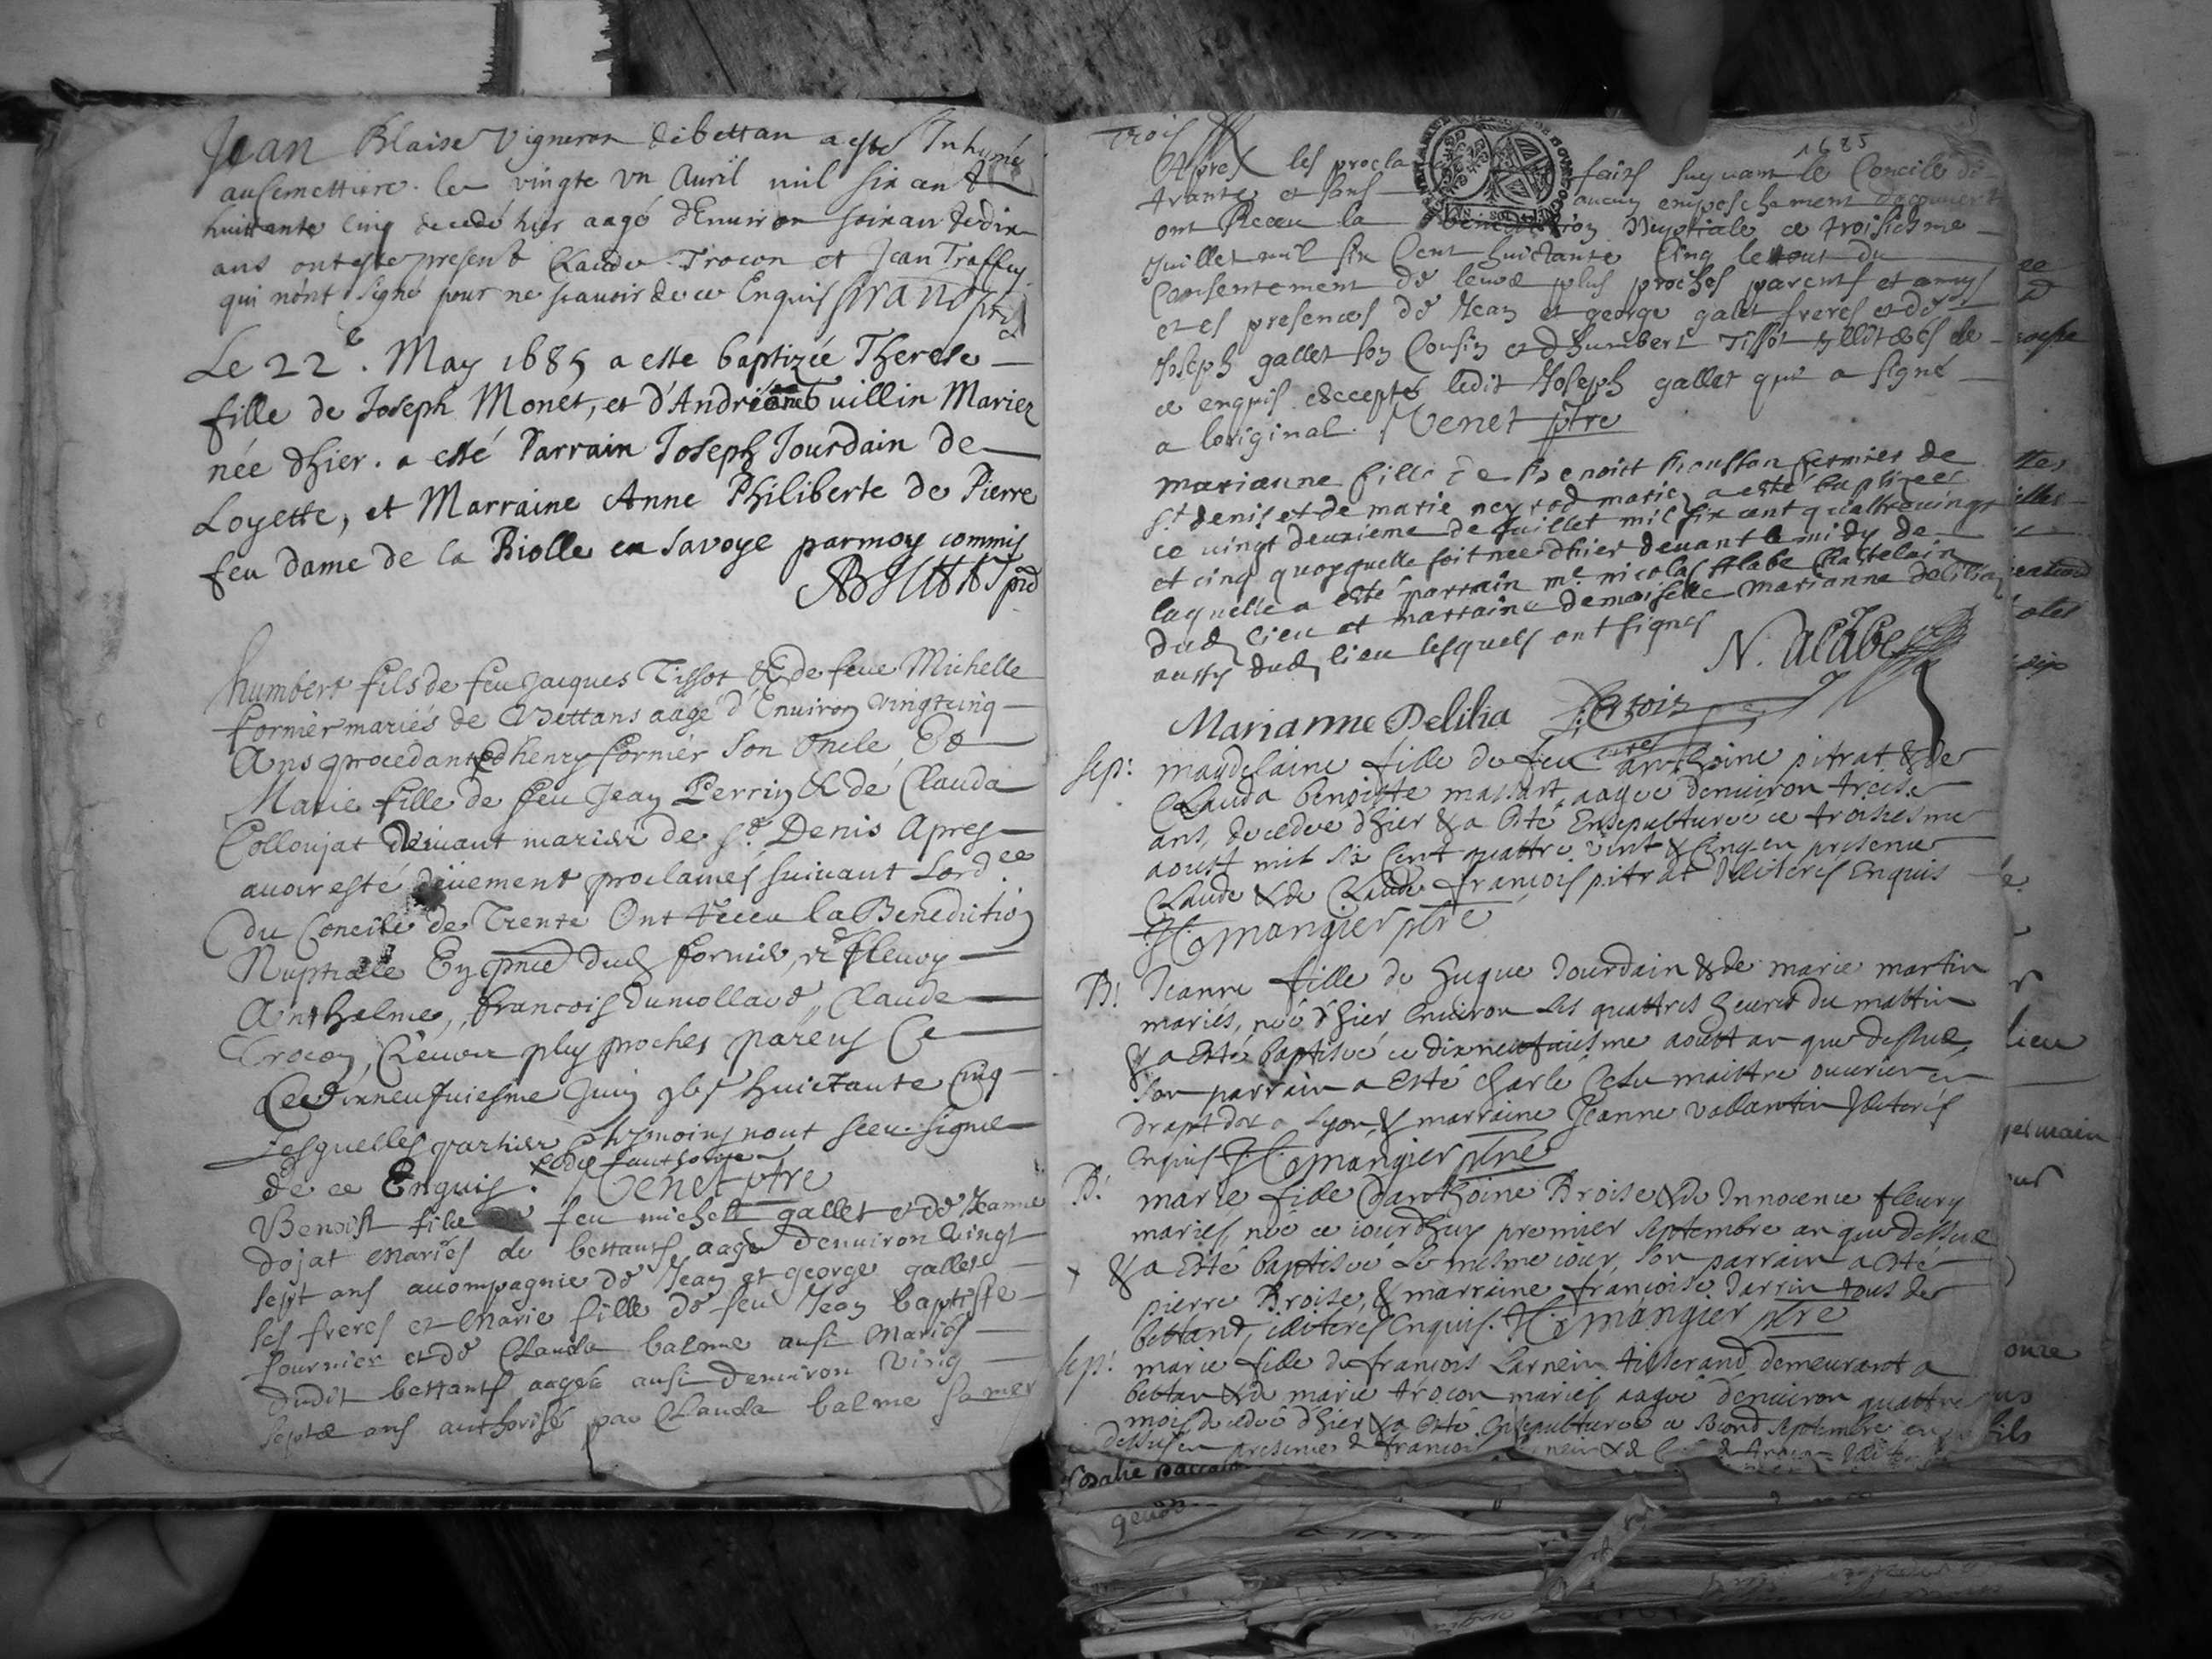 Jean Blaise Vigneron de bettan a este Inhumé
au semettiere le vingte vn Auril mil six cent
huittante cinq decedé hier aagé d'Enuiron soixante dix
ans ont este present Claude Trocon et Jean Traffey
qui n'ont signé pour ne scauoir de ce Enquis
Le 22e. May 1685 a esté baptizée Therese
fille de Joseph Monet, et d'Andriane Guillin Mariez
née dhier. a esté Parrain Joseph Jourdain de
Loyette, et Marraine Anne Philiberte de Pierre
feu dame de la Biolle en Savoye par moy commis
humbert fils de feu Jacques Tissot & de feue Michelle
fornier mariés de Bettans aagé d'Enuiron vingtcinq
Ans procedant d henry fornier son Oncle, Et
Marie fille de feu Jean Perrin & de Clauda
Collonjat viuant mariez de St. Denis Apres
auoir esté düement proclamés suiuant Lordce
du Concile de Trente Ont receu la Benediction
Nuptiale En pnce dud fornier, fleury
Anthelme, francois Dumollard, Claude
Trocon, Leurs plus proches parens Ce
Ce dixneufuiesme Juin huictante Cinq
Lesquelles parties & tesmoins n'ont sceu signe
de ce Enquis. Venet ptre
Benoist fils de feu michel gallet et de Jeanne
dojat mariés de bettans aagé denuiron vingt
sept ans acompagnie de Jean et george gallet
ses freres et Marie fille de feu Jean baptiste
fournier et de Clauda balme ausi Mariés
dudit bettans aagée ausi denuiron ving
septe ans authorisé par Clauda balme sa mer
Trois
1685
Apres les procla faits suyuant le Concile de
trante et sans aucun empeschement decouuert
ont Receu la benediction Nuptiale ce troisiesme
Juillet mil six Cent huictante Cinq le tout du
Consentement de leurs plus proches parents et amys
et es presences de Jean et george galet freres et de
Joseph gallet son Cousin et dhumbert Tissot Illiterés de
ce enquis excepté ledit Joseph gallet qui a signé
a loriginal. Venet ptre
marianne fille de Benoist Rousson fermier de
St denis et de marie neyrod mariez a esté baptizée
ce vingt deuxieme de Juillet mil six cent quattre vingt
et cinq quoyquelle soit née dhier deuant le midy de
laquelle a esté parrain mr. nicolas Alabe Chastelain
dud lieu et marraine demoiselle Marianne Delilia
aussy dud lieu lesquels ont signes
N. Alabe
Marianne Delilia
Sep: magdelaine fille de feu anthoine pitrat & de
Clauda benoiste massart aagée denuiron treise
ans, decedee dhier & a esté Ensepulturée ce troisiesme
aoust mil six Cent quattre vint & Cinq en presence
Claude & de Claude francois pitrat Illiterés Enquis
mongier ptre
B: Jeanne fille de hugue Jourdain & de marie martin
mariés, née d'hier enuiron les quattres heures du mattin
& a esté baptisée ce dixneufuiesme aoust an que dessus,
son parrain a esté Charle Cesu maistre ouurier en
drapt dor a Lyon, & marraine Jeanne vallantin Illiterés
enquis mongier ptre
B: marie fille d'anthoine Broise & de Innocence fleury
mariés née ce iourdhuy premier septembre an que dessus
& a esté baptisée Le mesme iour, son parrain a esté
pierre Broise, & marraine francoise Darrin tous de
bettand, illiterés enquis. mongier ptre
Sep: marie fille de francois Larnein tisserand demeurant a
bettan & de marie trocon mariés aagée denuiron quattre
mois decedée dhier & a esté Ensepulturée ce second septembre an